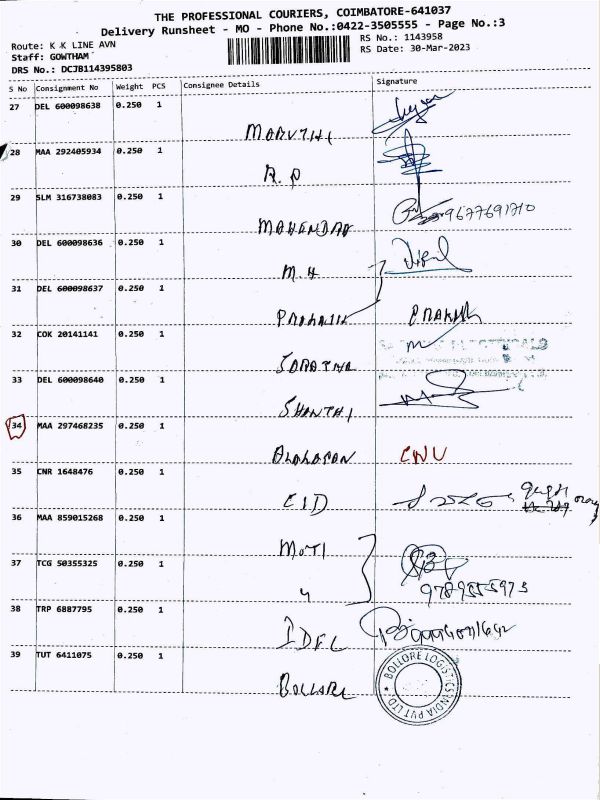 THE PROFESSIONAL COURIERS, COIMBATORE-641037
Delivery Runsheet - MO - Phone No.:0422-3505555 - Page No.:3
Route: K K LINE AVN
RS No.: 1143958
Staff: GOWTHAM
RS Date: 30-Mar-2023
DRS No.: DCJB114395803
S No Consignment No Weight PCS Consignee Details Signature
27 DEL 600098638 0.250 1
MARUTHI
28 MAA 292405934 0.250 1
R.P
29 SLM 316738083 0.250 1
9677691710
30 DEL 600098636 0.250 1
M.H
31 DEL 600098637 0.250 1
32 COK 20141141 0.250 1
33 DEL 600098640 0.250 1
SHANTHI
34 MAA 297468235 0.250 1
CNU
35 CNR 1648476 0.250 1
CID
36 MAA 859015268 0.250 1
MOTI
37 TCG 50355325 0.250 1
38 TRP 6887795 0.250 1
39 TUT 6411075 0.250 1
BOLLORE
BOLLORE LOGISTICS INDIA PVT LTD